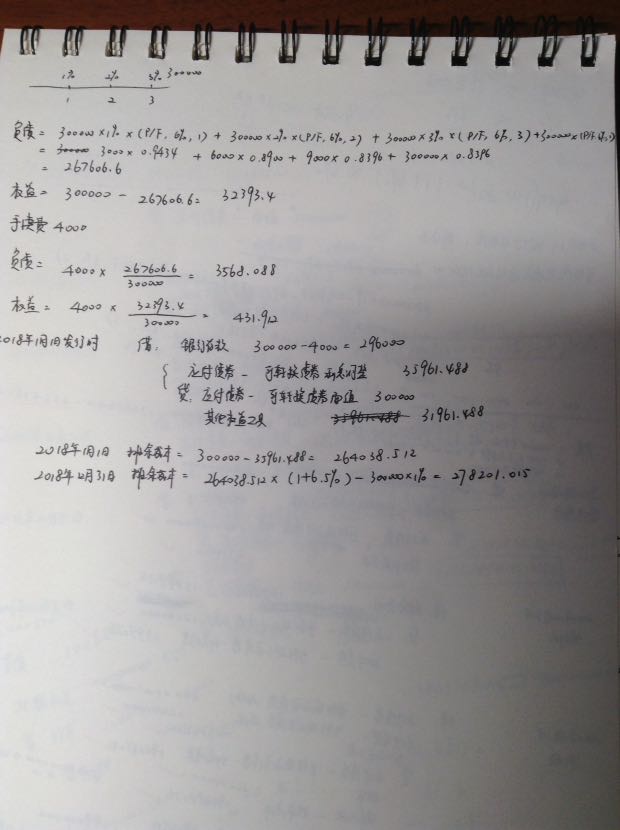 1% 2% 3% 300000
1 2 3
负债 = 300000×1%×(P/F, 6%, 1) + 300000×2%×(P/F, 6%, 2) + 300000×3%×(P/F, 6%, 3)+300000×(P/F,6%,3)
= 3000×0.9434 + 6000×0.8900 + 9000×0.8396 + 300000×0.8396
= 267606.6
权益 = 300000 - 267606.6 = 32393.4
手续费 4000
负债 = 4000 × 267606.6/300000 = 3568.088
权益 = 4000 × 32393.4/300000 = 431.912
2018年1月1日发行时 借: 银行存款 300000-4000 = 296000
应付债券 - 可转换债券利息调整 35961.488
贷: 应付债券 - 可转换债券面值 300000
其他权益工具 35961.488 31961.488
2018年1月1日 摊余成本 = 300000-35961.488= 264038.512
2018年12月31日 摊余成本 = 264038.512×(1+6.5%)-300000×1% = 278201.015